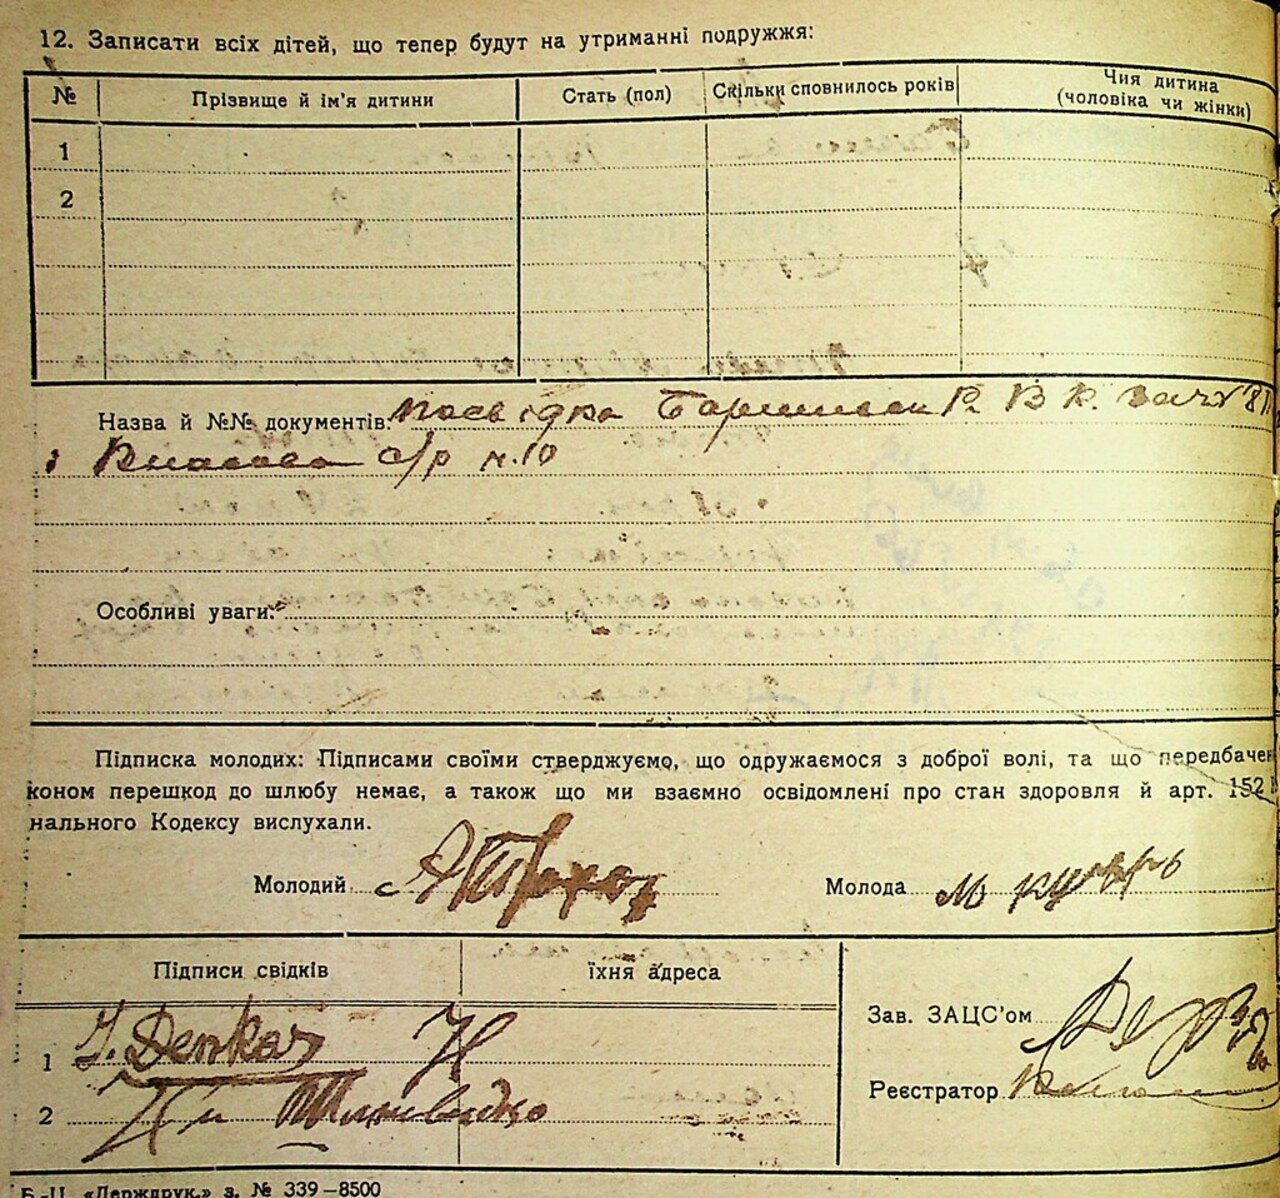 12. Записати всіх дітей, що тепер будут на утриманні подружжя:
№ Прізвище й ім'я дитини Стать (пол) Скільки сповнилось років Чия дитина (чоловіка чи жінки)
1
2
Назва й №№ документів: посвідка Р. В К.
і с/р н.10
Особливі уваги:
Підписка молодих: Підписами своїми стверджуємо, що одружаємося з доброї волі, та що передбачен
коном перешкод до шлюбу немає, а також що ми взаємно освідомлені про стан здоровля й арт. 152
нального Кодексу вислухали.
Молодий Молода М
Підписи свідків їхня адреса
Зав. ЗАЦС'ом
1
Реєстратор
2
Б.-Ц. «Держдрук.» з. № 339—8500